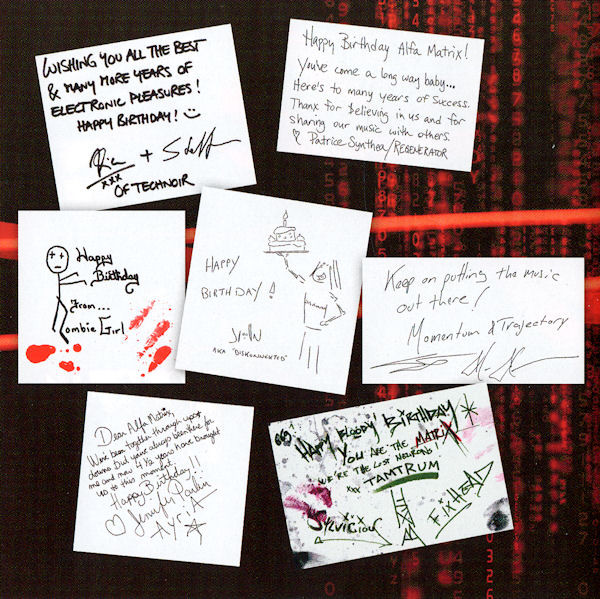 WISHING YOU ALL THE BEST
& MANY MORE YEARS OF
ELECTRONIC PLEASURES!
HAPPY BIRTHDAY!
+ Steffen
xxx
OF TECHNOIR
Happy Birthday Alfa Matrix!
You've come a long way baby...
Here's to many years of Success.
Thanx for Believing in us and for
sharing our music with others.
Patrice Synthea/REGENERATOR
Happy
Birthday
From...
Zombie Girl
HAPPY
BIRTHDAY!
AKA "DISKONNEKTED"
Keep on putting the music
out there!
Momentum & Trajectory
Dear Alfa Matrix,
We've been together through ups &
downs but your always been there for
me and now 4 1/2 years have brought
us to this moment.
Happy Birthday!!
Jennifer Parkin
Ayria
HAPPY BLOODY BIRTHDAY
YOU ARE THE MATRIX
WE'RE THE LOST NEURONS
xxx TAMTRUM
SYLVICIOUS
FIXHEAD